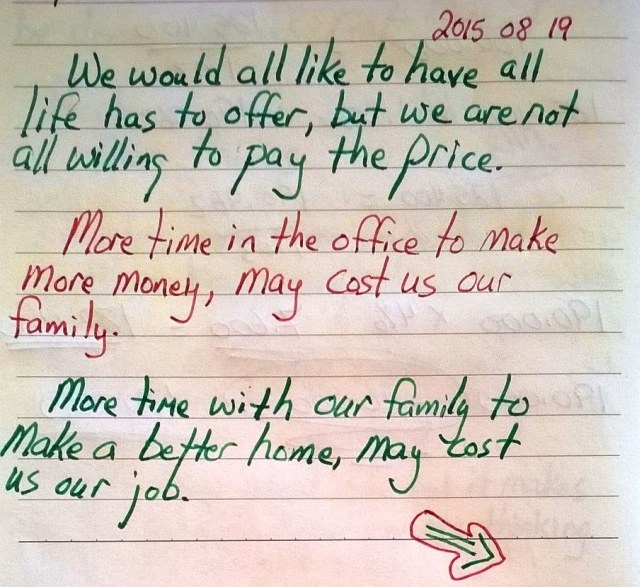 2015 08 19
We would all like to have all
life has to offer, but we are not
all willing to pay the price.
More time in the office to make
more money, may cost us our
family.
More time with our family to
make a better home, may cost
us our job.